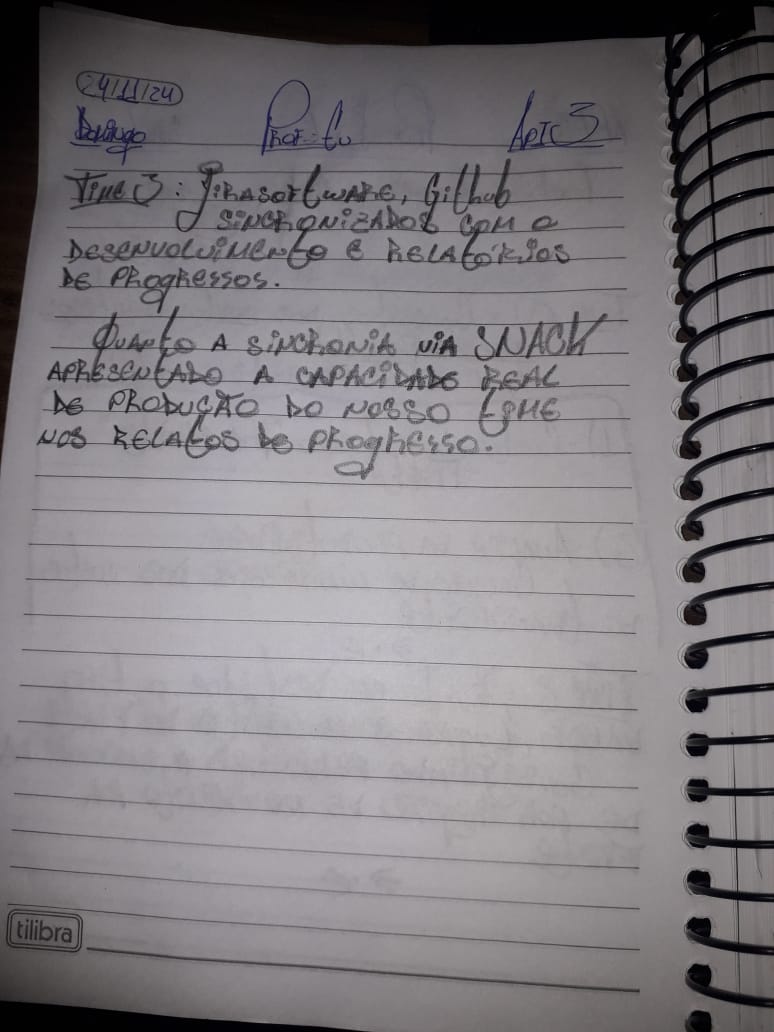 24/11/24
Domingo Prof.: Eu Artc 3
Time 3: Jirasoftware, Github
SINCRONIZADOS COM O
DESENVOLVIMENTO E RELATÓRIOS
DE PROGRESSOS.
QUANTO A SINCRONIA VIA SNACK
APRESENTADO A CAPACIDADE REAL
DE PRODUÇÃO DO NOSSO TIME
NOS RELATOS DE PROGRESSO.
tilibra